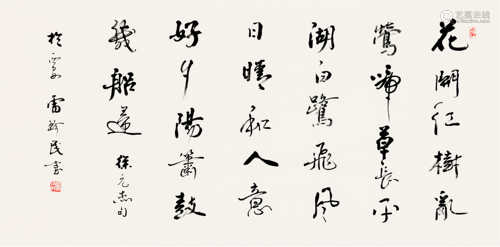 花開紅樹亂
鶯啼草長平
湖白鷺飛風
日晴和人意
好夕陽簫鼓
幾船歸 徐元杰句
於 雷珍民書